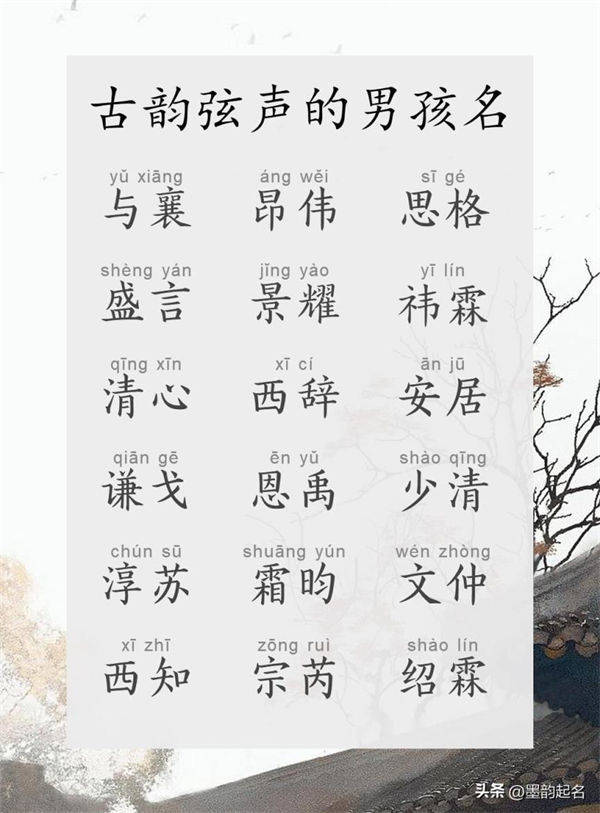 古韵弦声的男孩名
yǔ xiāng áng wěi sī gé
与襄 昂伟 思格
shèng yán jǐng yào yī lín
盛言 景耀 祎霖
qīng xīn xī cí ān jū
清心 西辞 安居
qiān gē ēn yǔ shào qīng
谦戈 恩禹 少清
chún sū shuāng yún wén zhòng
淳苏 霜昀 文仲
xī zhī zōng ruì shào lín
西知 宗芮 绍霖
头条 @墨韵起名